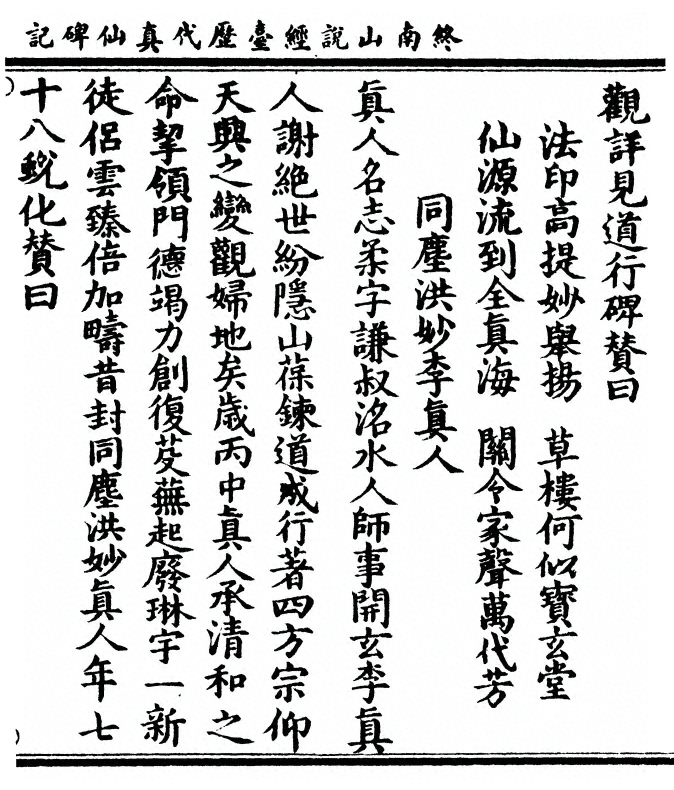 終南山說經臺歷代真仙碑記
觀詳見道行碑贊曰
法印高提妙舉揚 草樓何似寶玄堂
仙源流到全眞海 關令家聲萬代芳
同塵洪妙李眞人
眞人名志柔字謙叔洺水人師事開玄李眞
人謝絶世紛隱山葆鍊道成行著四方宗仰
天興之變觀婦地矣歲丙申眞人承清和之
命挈領門德竭力創復芟蕪起廢琳宇一新
徒侶雲臻倍加疇昔封同塵洪妙眞人年七
十八蛻化贊曰